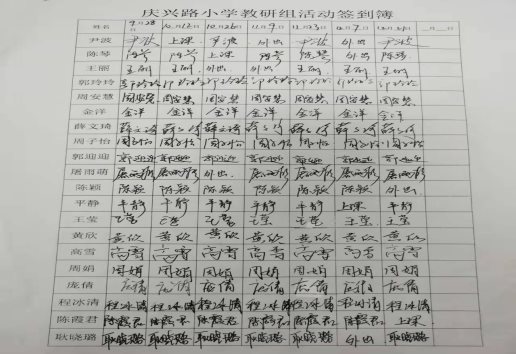 庆兴路小学教研组活动签到簿
姓名 9月28日 10月12日 10月26日 11月9日 11月23日 12月7日 月 日
尹波 尹波 上课 尹波 外出 尹波 外出 尹波
陈琴 陈琴 陈琴 上课 陈琴 陈琴 外出 陈琴
王丽 王丽 王丽 外出 王丽 王丽 王丽 王丽
郭玲玲 郭玲玲 郭玲玲 郭玲玲 郭玲玲 郭玲玲 郭玲玲 郭玲玲
周安慧 周安慧 周安慧 周安慧 周安慧 周安慧 周安慧 周安慧
金洋 金洋 金洋 金洋 金洋 金洋 金洋 金洋
薛文琦 薛文琦 薛文琦 薛文琦 薛文琦 薛文琦 薛文琦 薛文琦
周子怡 周子怡 周子怡 周子怡 周子怡 周子怡 周子怡 周子怡
郭迎迎 郭迎迎 郭迎迎 郭迎迎 郭迎迎 郭迎迎 郭迎迎 郭迎迎
屠雨萌 屠雨萌 屠雨萌 外出 屠雨萌 屠雨萌 屠雨萌 屠雨萌
陈颖 陈颖 陈颖 陈颖 陈颖 陈颖 陈颖 外出
平静 平静 平静 平静 平静 平静 上课 平静
王莹 王莹 王莹 王莹 王莹 王莹 王莹 王莹
黄欣 黄欣 黄欣 黄欣 黄欣 黄欣 黄欣 黄欣
高雪 高雪 高雪 高雪 高雪 高雪 高雪 高雪
周娟 周娟 周娟 周娟 周娟 周娟 周娟 周娟
庞倩 庞倩 庞倩 庞倩 庞倩 庞倩 庞倩 庞倩
程冰清 程冰清 程冰清 程冰清 程冰清 程冰清 程冰清 程冰清
陈霞君 陈霞君 陈霞君 陈霞君 陈霞君 陈霞君 陈霞君 上课
耿晓璐 耿晓璐 耿晓璐 耿晓璐 耿晓璐 耿晓璐 外出 耿晓璐